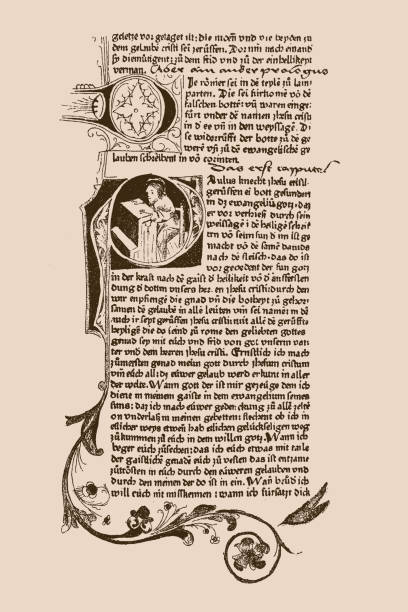 gesetze vor gesaget ist: die moēn vnd vie beyden zu
dem gelaubē cristi seī zerüffen. Dorum nach einand
sȳ diemütigent: zu dem frid vnd zu der einhellikeyt
verman. Aber ain ander prologus
Die römer sei in dē teylē zu lam
parten. Die sei fürkomē vō dē
falschen bottē: vñ waren einge
fürt vnder dē namen jhesu cristi
in dē ee vñ in den weyssagē. Di
se widerrüfft der botte zu dē ge
werē vñ zu dē ewangelischē ge
lauben schreibent in vō corinten.
Das erst cappitel
Paulus knecht jhesu cristi
gerüssen ei bott gesundert
in dz ewangeliū goti: daz
er vor verhieß durch sein
weissagē i dē heiligē schrif
ten vō seim sun ď im ist ge
macht vō dē samē dauids
nach dē fleisch. das do ist
vor geordent der sun goti
in der krafft nach dē gaist ď heilikeit vō ď aufferstē
dung ď dotten vnsers herren jhesu cristi: durch den
wir enpfingē die gnad vñ die botheyt zu gehor
samen dē gelaubē in allē leüten vm sei namē: in dē
auch ir seyt gerüffen jhesu cristi: mit allē dē gerüffē
heyligē die do seind zu rome den geliebten gottes
genad sey mit eüch vnd frid von got vnserm vat
ter vnd dem herren jhesu cristi. Ernstlich ich mach
zumersten genad meim gott durch jhesum cristum
vm eüch all: dz eüwer gelaub werd erkunt in aller
der welte. Wann gott der ist mir gezeüge dem ich
dient in meinem gaiste in dem ewangelium seines
suns: daz ich mach eüwer gedenckung zu allē zeitē
on vnderlaß in meinen gebetten: flechent ob ich in
etlicher weys etwen hab etlichen gelückseligen weg
zukummen zu eüch in dem willen gotz. Wann ich
beger eüch zusechen: das ich eüch etwas mit taile
der gaistlichē genadē eüch zu vesten das ist entzame
zutrösten in eüch durch den eüweren gelauben vnd
durch den meinen der do ist in ein. Wañ brüď ich
will eüch nit mißkennen: wann ich fürsatzt dick